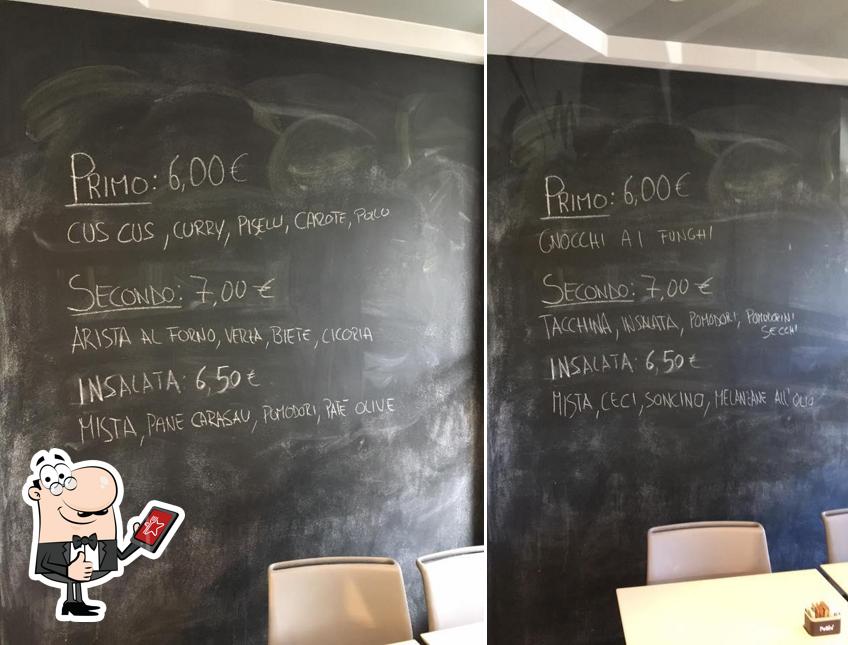 PRIMO: 6,00€
CUS CUS, CURRY, PISELLI, CAROTE, POLLO
SECONDO: 7,00€
ARISTA AL FORNO, VERZA, BIETE, CICORIA
INSALATA: 6,50€
MISTA, PANE CARASAU, POMODORI, PATÈ OLIVE
PRIMO: 6,00€
GNOCCHI AI FUNGHI
SECONDO: 7,00€
TACCHINA, INSALATA, POMODORI, POMODORINI
SECCHI
INSALATA: 6,50€
MISTA, CECI, SONCINO, MELANZANE ALL'OLIO